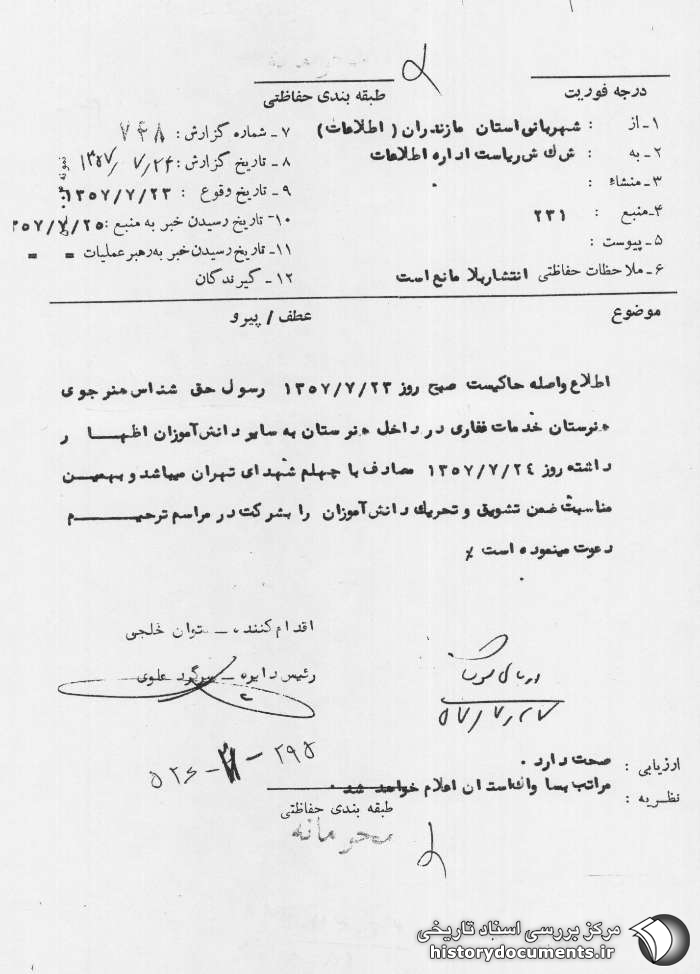 درجه فوریت
طبقه بندی حفاظتی
۱ـ از : شهربانی استان مازندران (اطلاعات)
۲ـ به : ش ك ش ریاست اداره اطلاعات
۳ـ منشاء :
۴ـ منبع : ۲۳۱
۵ـ پیوست :
۶ـ ملاحظات حفاظتی انتشار بلا مانع است
۷ـ شماره گزارش : ۷۴۸
۸ـ تاریخ گزارش : ۱۳۵۷/۷/۲۴
۹ـ تاریخ وقوع : ۱۳۵۷/۷/۲۳
۱۰ـ تاریخ رسیدن خبر به منبع : ۳۵۷/۷/۲۵
۱۱ـ تاریخ رسیدن خبر به رهبر عملیات = =
۱۲ـ گیرندگان
نمونه
موضوع
عطف / پیرو
اطلاع واصله حاکیست صبح روز ۱۳۵۷/۷/۲۳ رسول حق شناس هنرجوی
هنرستان خدمات غفاری در داخل هنرستان به سایر دانش آموزان اظهار
داشته روز ۱۳۵۷/۷/۲۴ مصادف با چهلم شهدای تهران میباشد و بهمین
مناسبت ضمن تشویق و تحریك دانش آموزان را بشرکت در مراسم ترحیم
دعوت مینموده است ٪
اقدام کننده ـ ستوان خلجی
رئیس دایره ـ سرگرد علوی
۵۷/۷/۲۷
۲۹۵ -
۵۲۶
ارزیابی : صحت دارد .
نظریه : مراتب بساواك استان اعلام خواهد شد .
طبقه بندی حفاظتی
محرمانه
مرکز بررسی اسناد تاریخی
historydocuments.ir